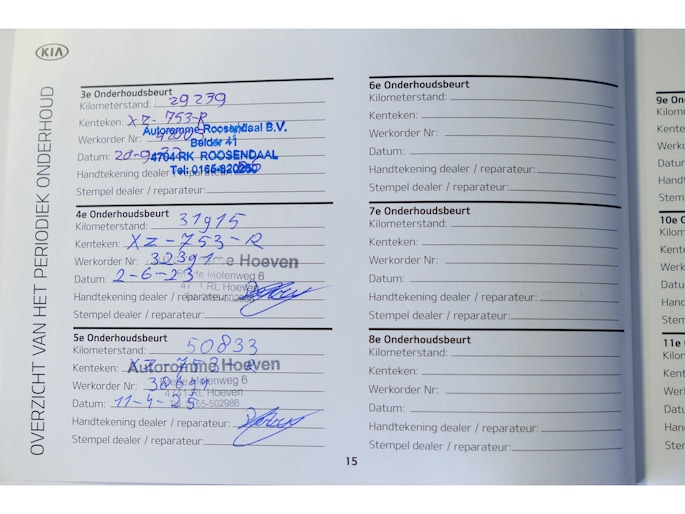 KIA
OVERZICHT VAN HET PERIODIEK ONDERHOUD
3e Onderhoudsbeurt
Kilometerstand: 29239
Kenteken: XZ-753-R
Werkorder Nr:
Datum: 20-9-
Handtekening dealer / reparateur:
Stempel dealer / reparateur:
Autoromme Roosendaal B.V.
Belder 41
4704 RK ROOSENDAAL
Tel: 0165-820250
4e Onderhoudsbeurt
Kilometerstand: 31915
Kenteken: XZ-753-R
Werkorder Nr: 32391
Datum: 2-6-23
Handtekening dealer / reparateur:
Stempel dealer / reparateur:
Hoeven
Molenweg 6
RL Hoeven
5e Onderhoudsbeurt
Kilometerstand: 50833
Kenteken: XZ-753-R
Werkorder Nr:
Datum: 11-4-25
Handtekening dealer / reparateur:
Stempel dealer / reparateur:
Autoromme Hoeven
Molenweg 6
4711 RL Hoeven
65-502986
15
6e Onderhoudsbeurt
Kilometerstand:
Kenteken:
Werkorder Nr:
Datum:
Handtekening dealer / reparateur:
Stempel dealer / reparateur:
7e Onderhoudsbeurt
Kilometerstand:
Kenteken:
Werkorder Nr:
Datum:
Handtekening dealer / reparateur:
Stempel dealer / reparateur:
8e Onderhoudsbeurt
Kilometerstand:
Kenteken:
Werkorder Nr:
Datum:
Handtekening dealer / reparateur:
Stempel dealer / reparateur:
9e On
Kilom
Kente
Werk
Datu
Hand
Stem
10e O
Kilom
Kente
Werk
Datu
Hand
Stem
11e O
Kilom
Kent
Wer
Datu
Han
Ster